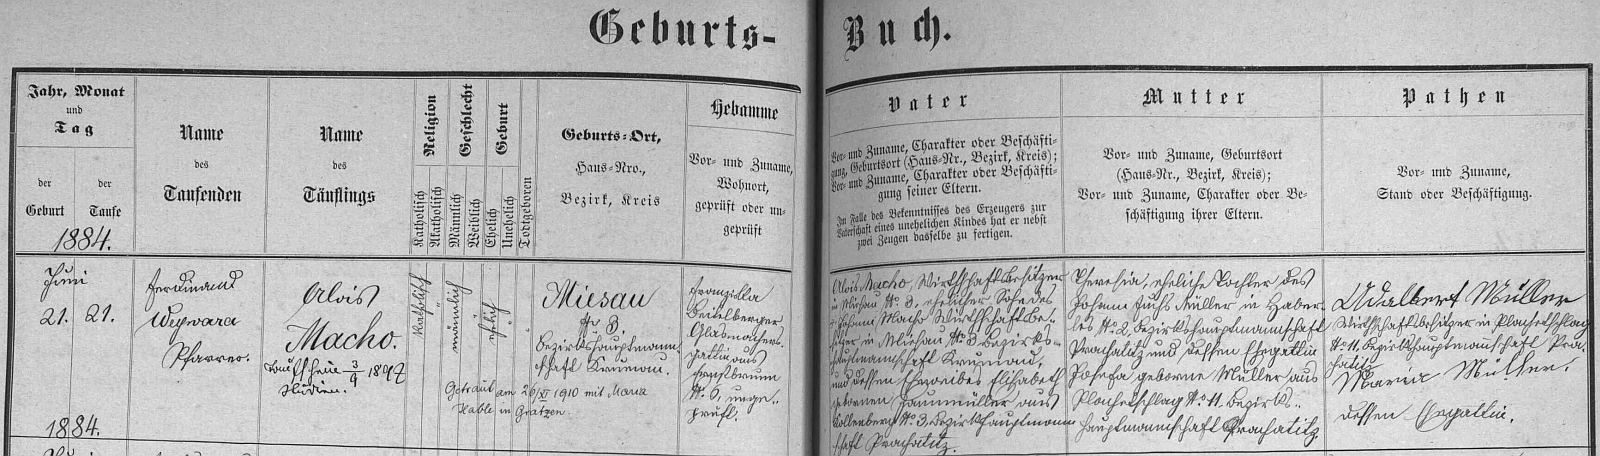 Geburts-Buch.
Jahr, Monat
und
Tag
der
Geburt
der
Taufe
1884.
Name
des
Taufenden
Name
des
Täuflings
Religion
Katholisch
Akatholisch
Geschlecht
Männlich
Weiblich
Geburt
Ehelich
Unehelich
Todtgeboren
Geburts-Ort,
Haus-Nro.,
Bezirk, Kreis
Hebamme
Vor- und Zuname,
Wohnort,
geprüft oder un-
geprüft
Vater
Vor- und Zuname, Charakter oder Beschäfti-
gung, Geburtsort (Haus-Nr., Bezirk, Kreis);
Vor- und Zuname, Charakter oder Beschäfti-
gung seiner Eltern.
Im Falle des Bekenntnisses des Erzeugers zur
Vaterschaft eines unehelichen Kindes hat er nebst
zwei Zeugen dasselbe zu fertigen.
Mutter
Vor- und Zuname, Geburtsort
(Haus-Nr., Bezirk, Kreis);
Vor- und Zuname, Charakter oder Be-
schäftigung ihrer Eltern.
Pathen
Vor- und Zuname,
Stand oder Beschäftigung.
Juni
21. 21.
1884.
Ferdinand
Wejwara
Pfarrer.
Alois
Macho.
Taufschein 3/9 1897
katholisch
männlich
ehelich
Miesau
No 3.
Bezirkshauptmann-
schaft Krumau.
Getraut am 26/XI 1910 mit Maria
Nable in Gratzen
Franziska
Beitelberger
Glasmachers-
gattin aus
Ernstbrunn
No 5, unge-
prüft.
Alois Macho, Wirthschaftsbesitzer
in Miesau No 3, ehelicher Sohn des
Johann Macho Wirthschaftsbe-
sitzer in Miesau No 3 Bezirks-
hauptmannschaft Krumau,
und dessen Eheweibes Elisabeth
gebornen Jaunmüller aus
No 3, Bezirkshauptmann
schaft Prachatitz.
Theresia, eheliche Tochter des
Johann Fuchs Müller in Haber-
les No 2 Bezirkshauptmannschaft
Prachatitz und dessen Ehegattin
Josefa geborne Müller aus
Plonetschlag No 11. Bezirks-
hauptmannschaft Prachatitz.
Adalbert Müller
Wirthschaftsbesitzer in Plonetschlag
No 11, Bezirkshauptmannschaft Pra-
chatitz
Maria Müller,
dessen Ehegattin.